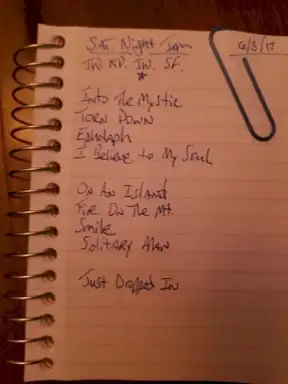 Sat. Night Jam 6/3/17
JW. KP. JW. SF.
*
Into The Mystic
TORN DOWN
Epitaph
I Believe to My Soul
ON AN ISLAND
Fire On The Mt.
Smile
SOLITARY MAN
Just Dropped In